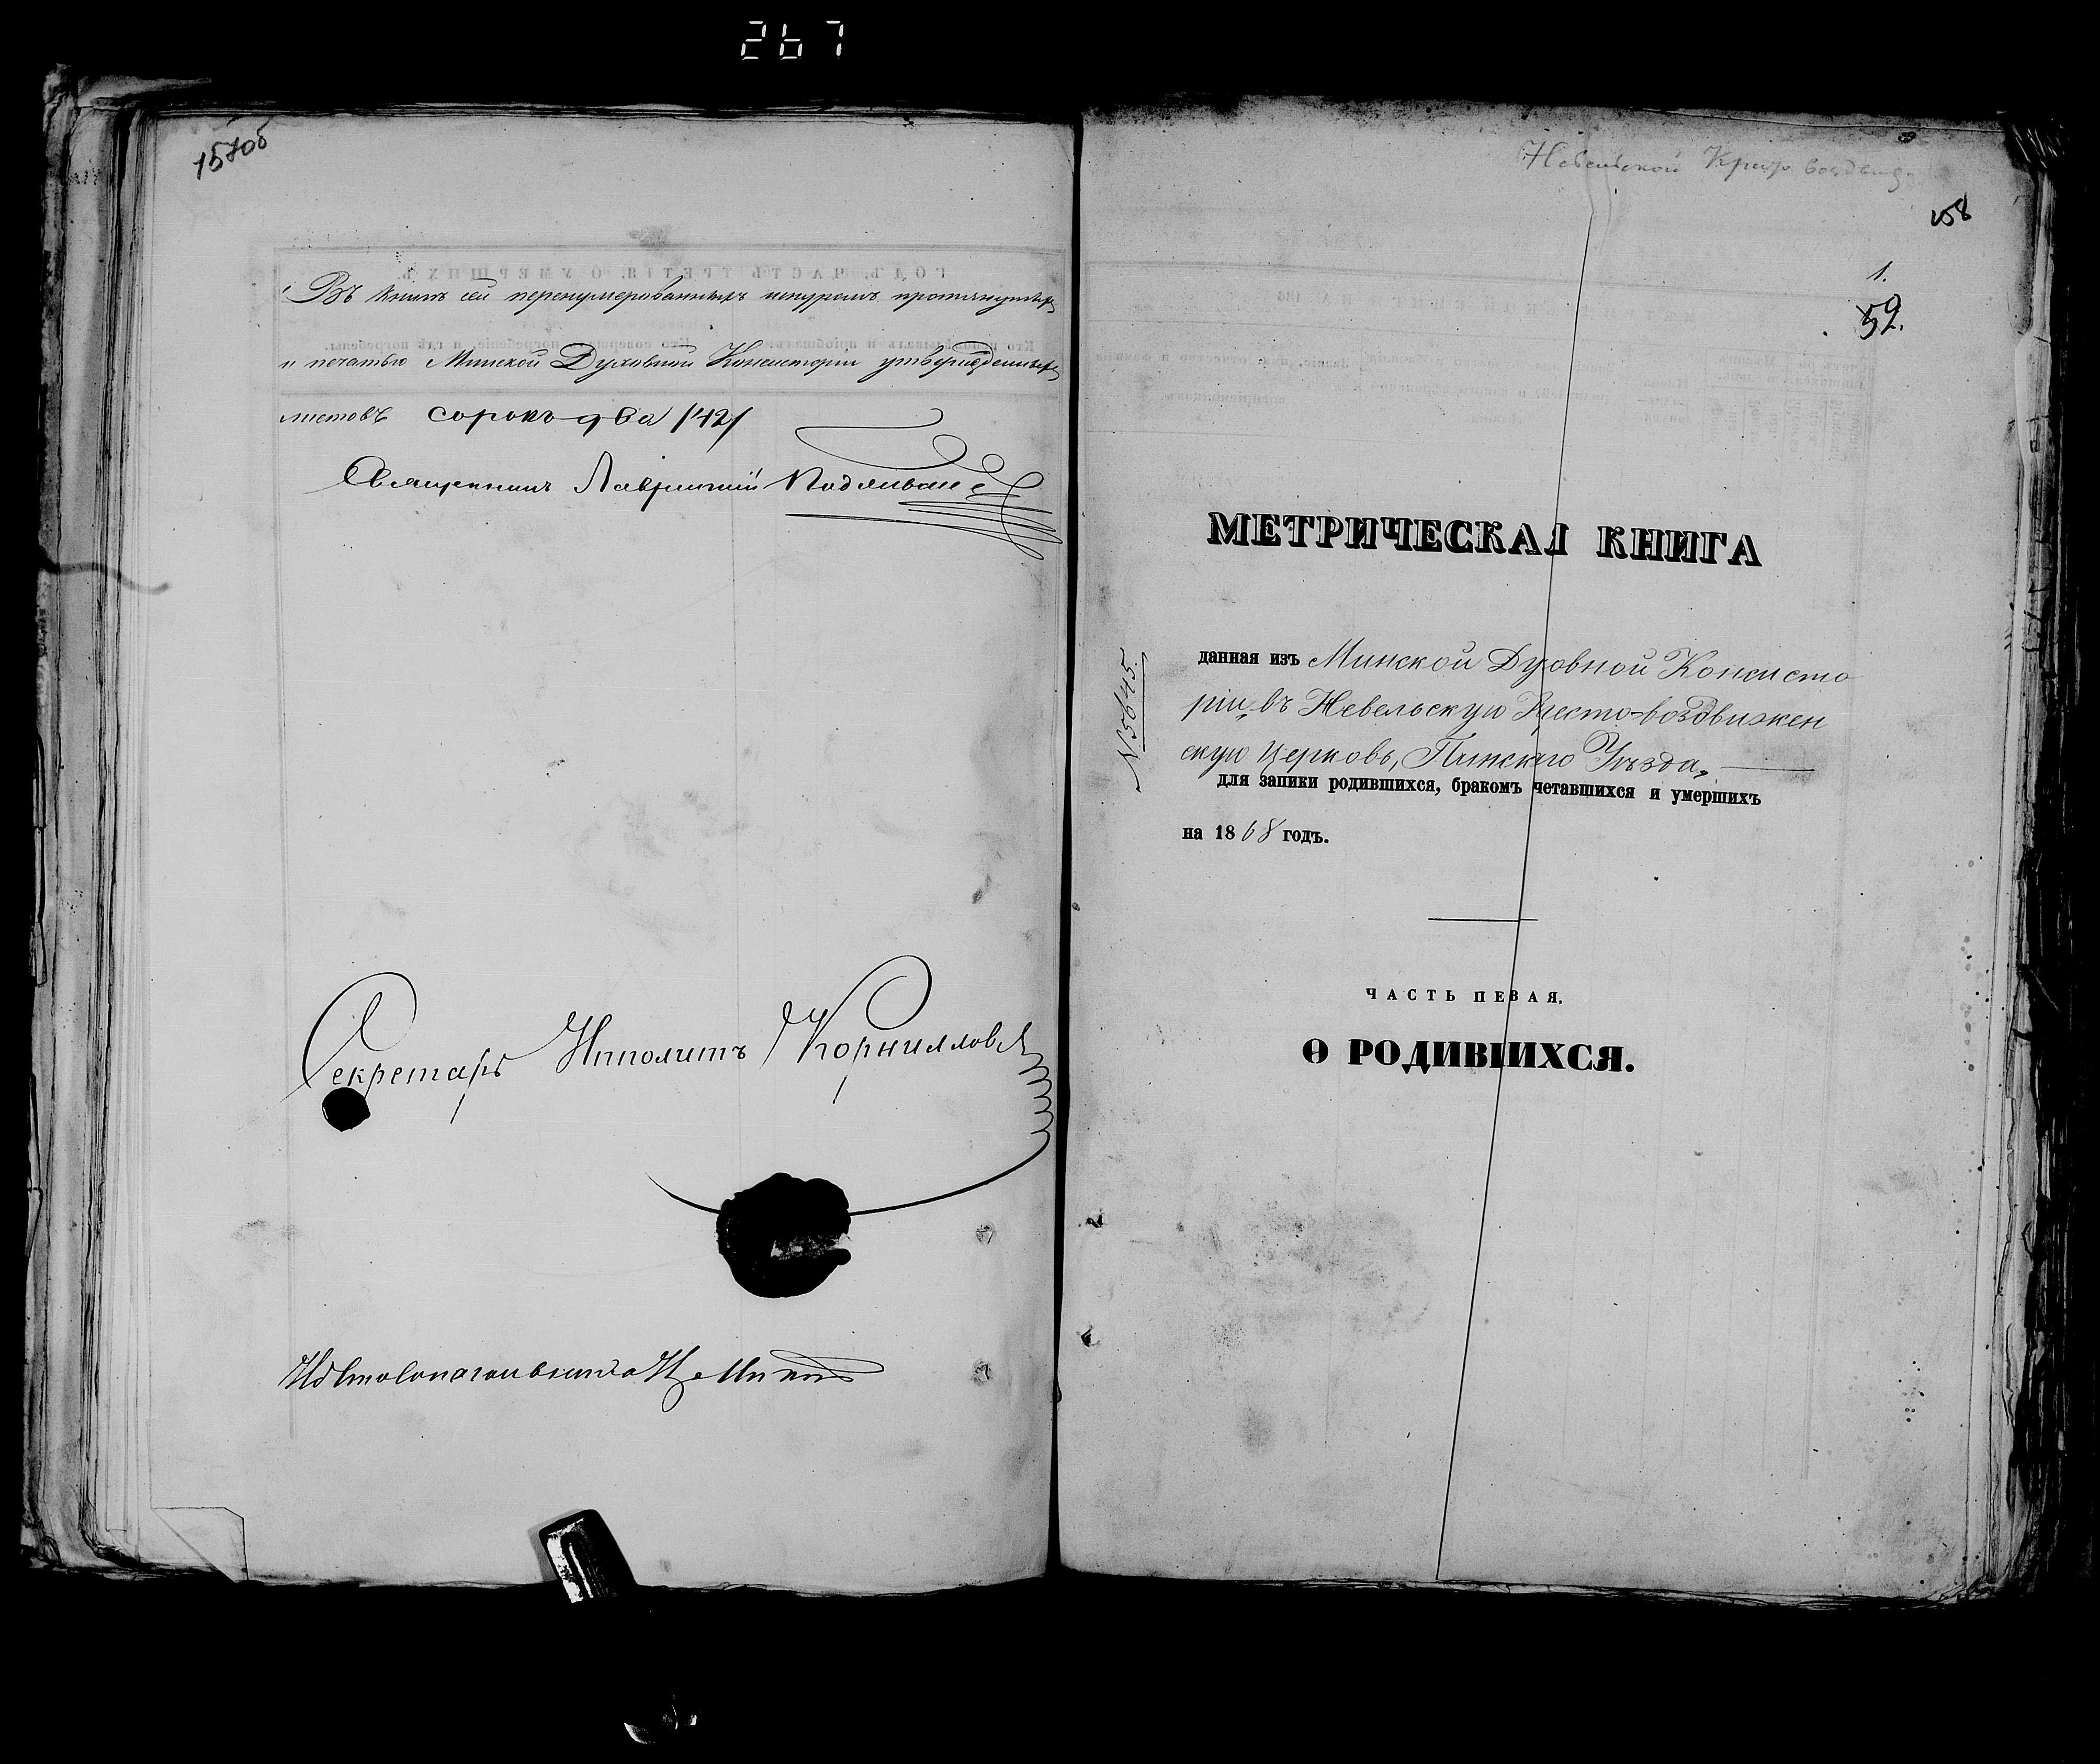 267
157об
Въ книгѣ сей перенумерованныхъ шнуромъ протянутыхъ
и печатью Минской Духовной Консисторіи утвержденныхъ
листовъ сорокъ два /42/
Священникъ Лаврентій
Секретарь Ипполитъ Корниллов
Невельской Кресто воздвиж
158
1.
52.
МЕТРИЧЕСКАЯ КНИГА
данная изъ Минской Духовной Консисто
ріи въ Невельскую Кресто-воздвижен
скую церковь, Пинскаго Уѣзда,
для запики родившихся, бракомъ четавшихся и умершихъ
на 1868 годъ.
N 5645.
ЧАСТЬ ПЕВАЯ.
Ѳ РОДИВШИХСЯ.